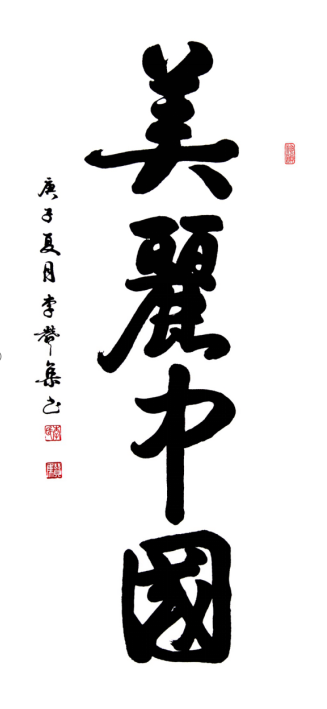 美麗中國
庚子夏月李聲集书